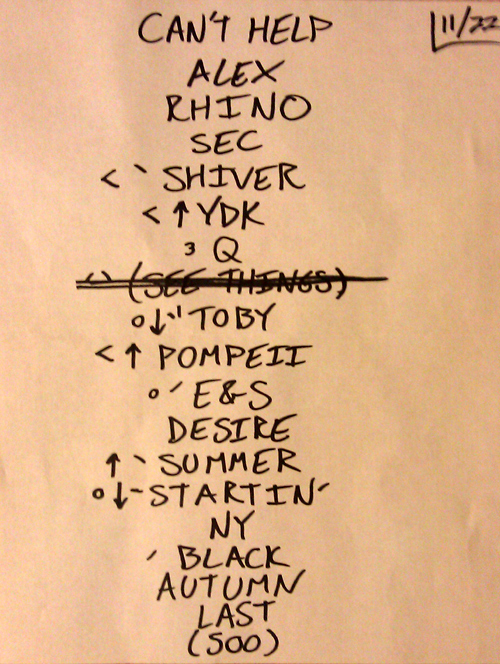 11/22
CAN'T HELP
ALEX
RHINO
SEC
< ` SHIVER
< ↑ YDK
3 Q
<> (SEE THINGS)
o ↓ `' TOBY
< ↑ POMPEII
o ' E&S
DESIRE
↑ ` SUMMER
o ↓ - STARTIN'
NY
' BLACK
AUTUMN
LAST
(500)